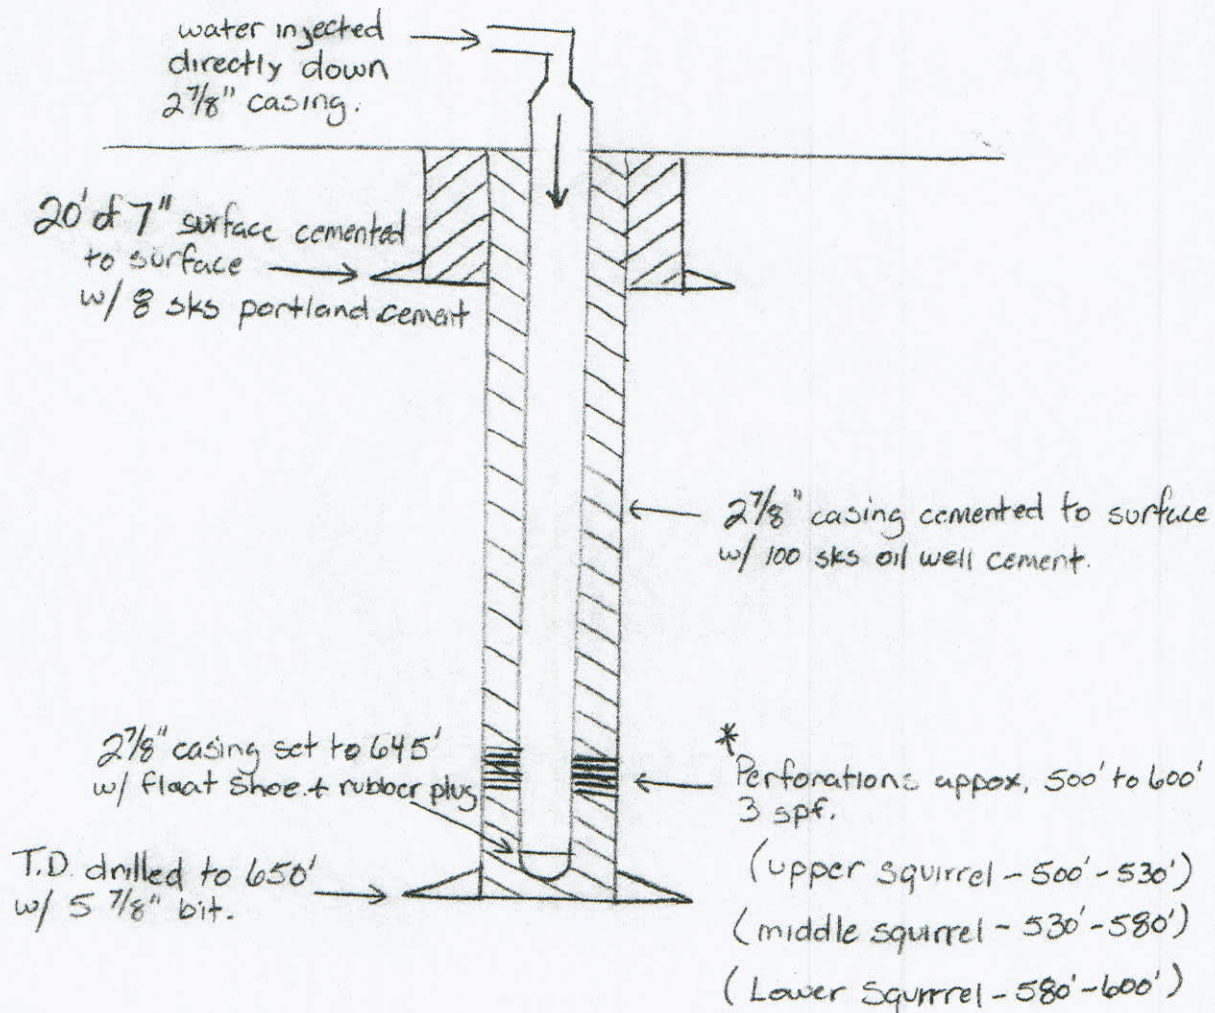 water injected
directly down
2 7/8" casing.
20' of 7" surface cemented
to surface
w/ 8 sks portland cement
2 7/8" casing cemented to surface
w/ 100 sks oil well cement.
2 7/8" casing set to 645'
w/ float shoe + rubber plug
T.D. drilled to 650'
w/ 5 7/8" bit.
*
Perforations appox. 500' to 600'
3 spf.
(upper squirrel - 500' - 530')
(middle squirrel - 530' - 580')
(Lower Squrrrel - 580' - 600')